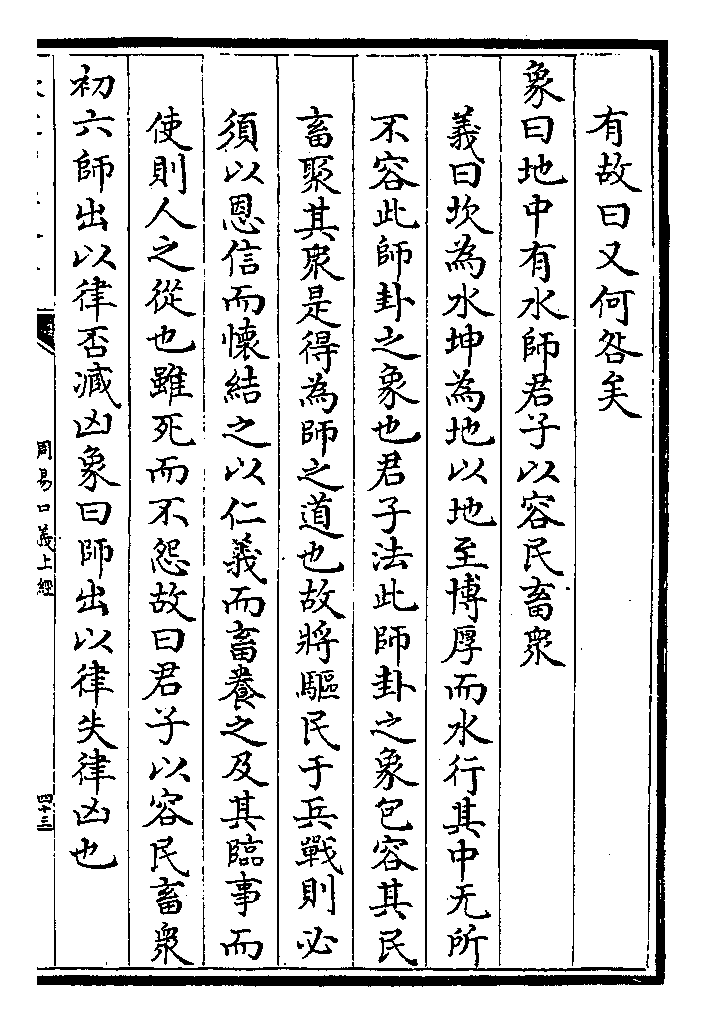 有故曰又何咎矣
象曰地中有水師君子以容民畜衆
義曰坎為水坤為地以地至博厚而水行其中无所
不容此師卦之象也君子法此師卦之象包容其民
畜聚其衆是得為師之道也故將驅民于兵戰則必
須以恩信而懷結之以仁義而畜養之及其臨事而
使則人之從也雖死而不怨故曰君子以容民畜衆
初六師出以律否臧凶象曰師出以律失律凶也
周易口義上經
四十三